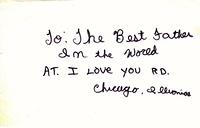 To: The Best Father
In the World
AT. I LOVE YOU RD.
Chicago, Illronias